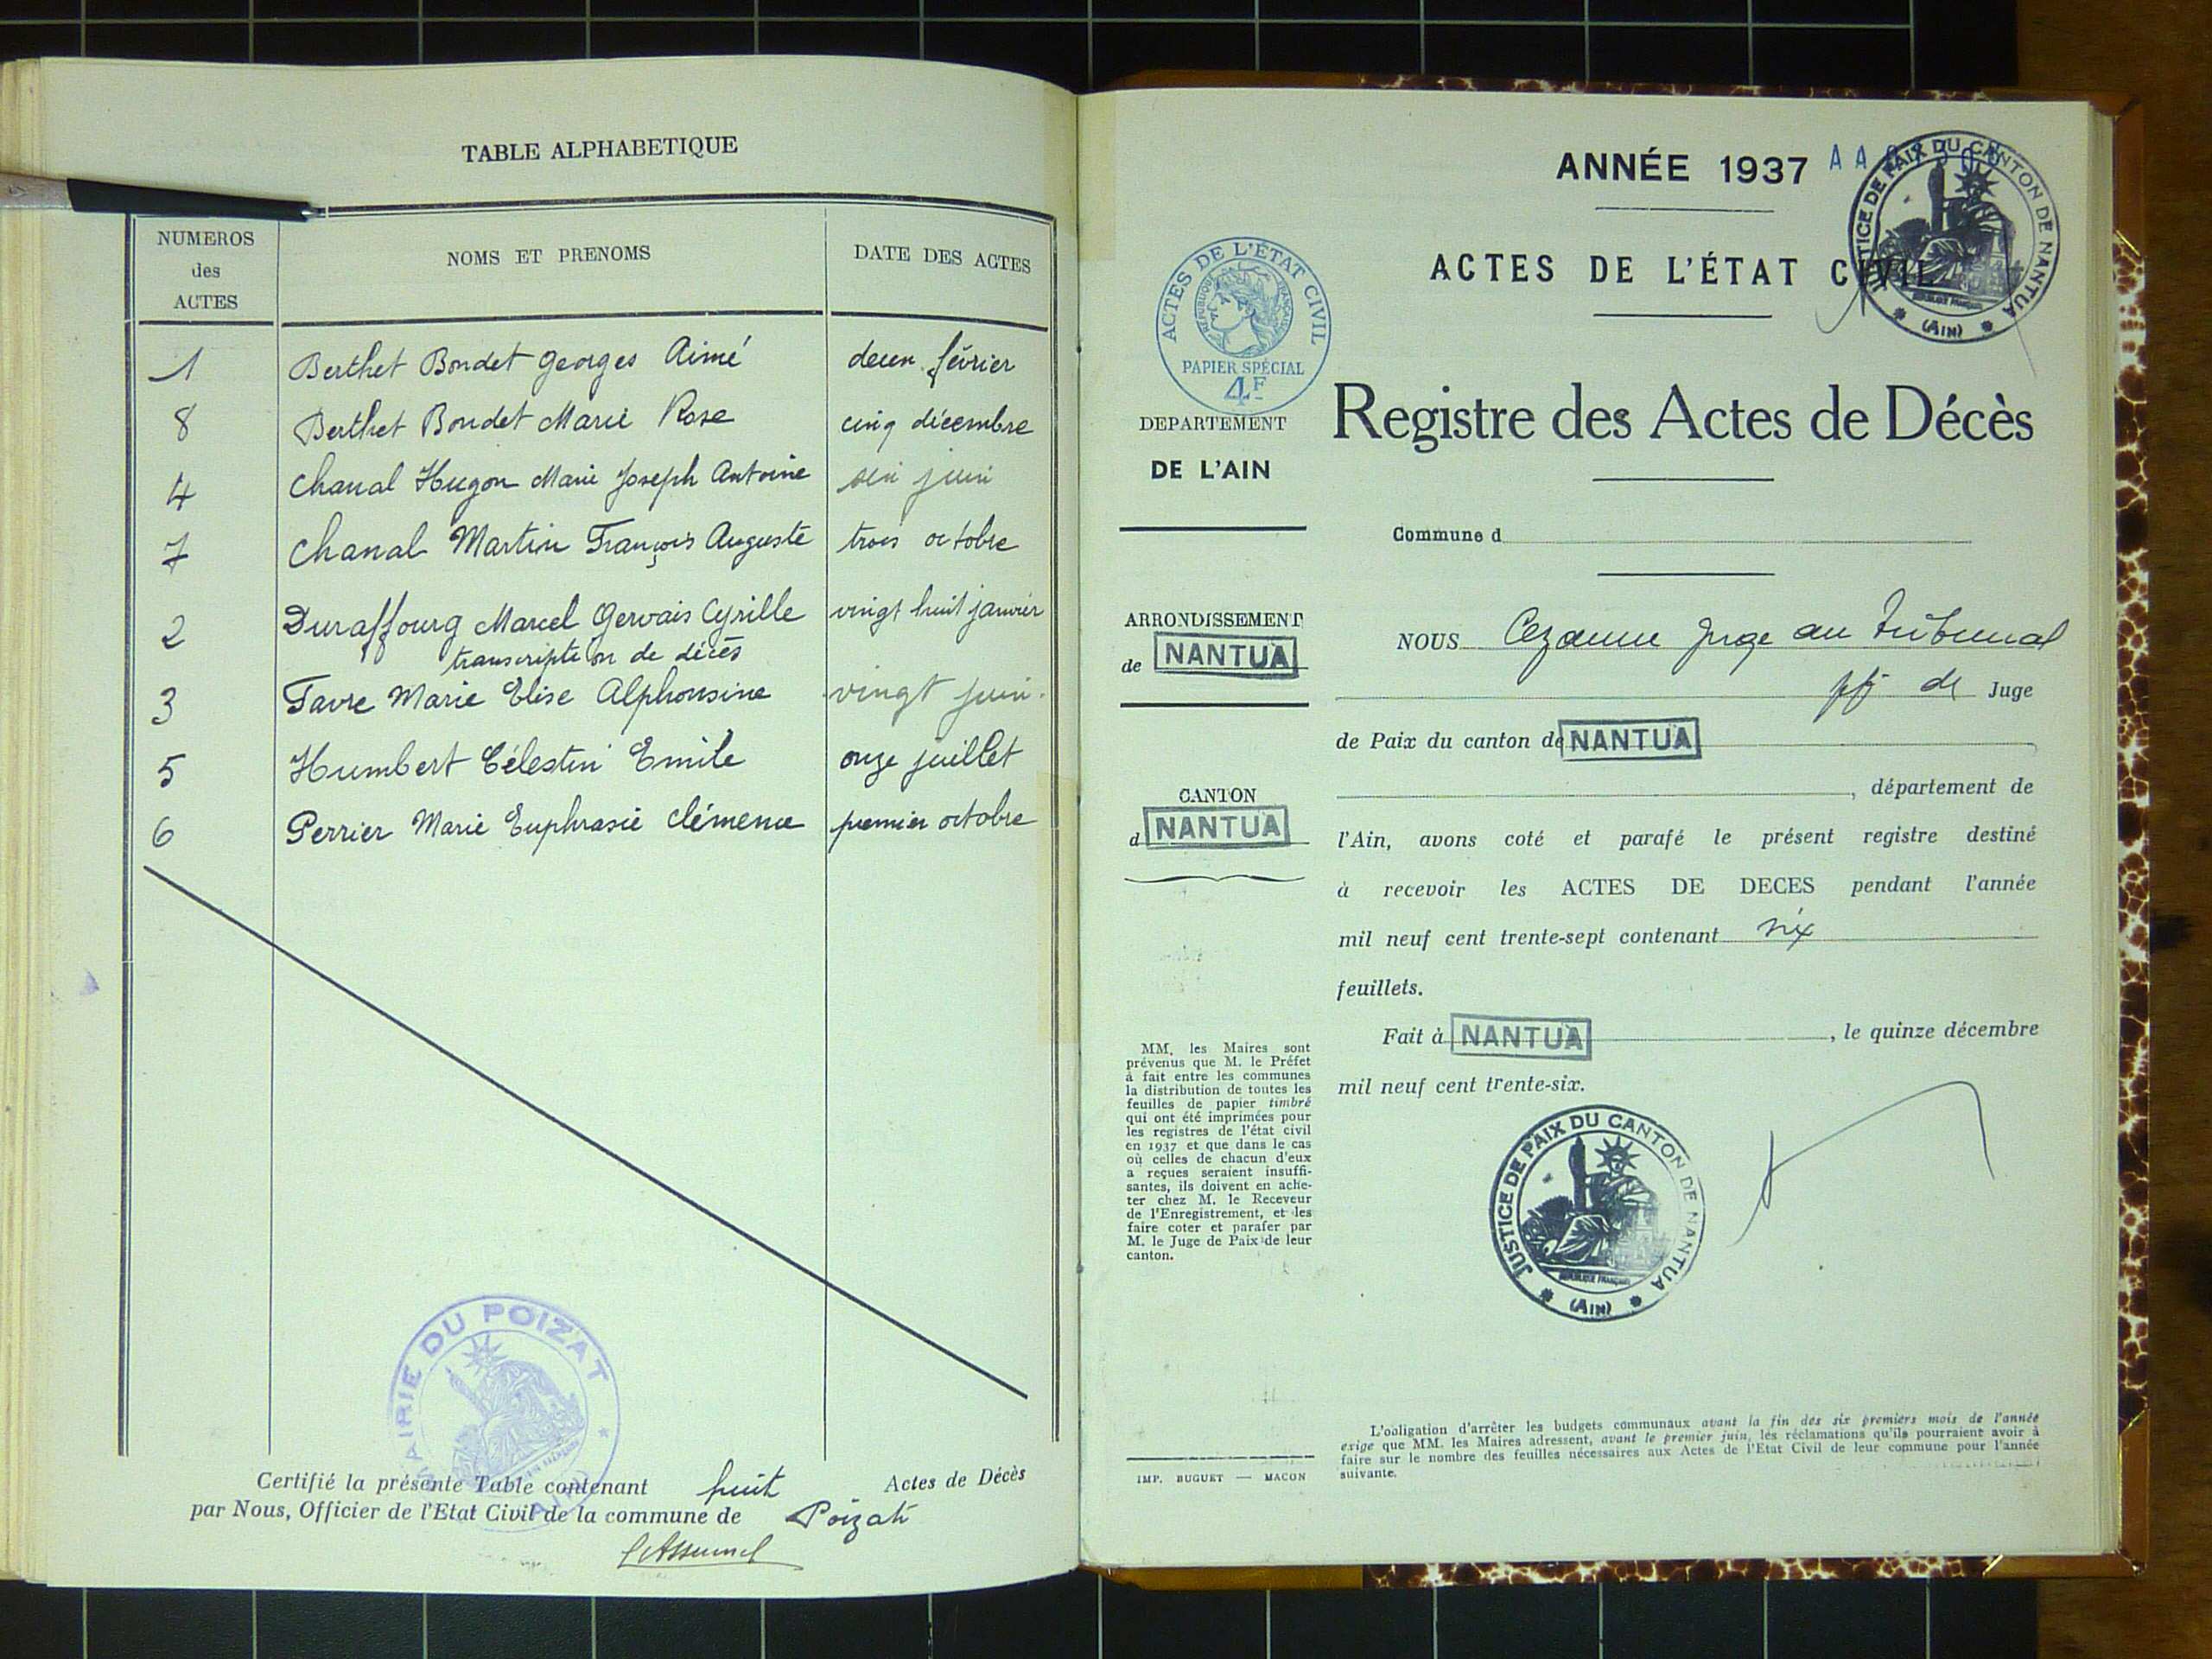 TABLE ALPHABETIQUE
NUMEROS
des
ACTES
NOMS ET PRENOMS
DATE DES ACTES
1 Berthet Bondet Georges Aimé deux février
8 Berthet Bondet Marie Rose cinq décembre
4 Chanal Hugon Marie Joseph Antoine six juin
7 Chanal Martin François Auguste trois octobre
2 Duraffourg Marcel Gervais Cyrille vingt huit janvier
transcription de décès
3 Favre Marie Elise Alphonsine vingt juin
5 Humbert Célestin Emile onze juillet
6 Perrier Marie Euphrasie Clémence premier octobre
MAIRIE DU POIZAT
Certifié la présente Table contenant huit Actes de Décès
par Nous, Officier de l'Etat Civil de la commune de Poizat
ANNÉE 1937
JUSTICE DE PAIX DU CANTON DE NANTUA
(AIN)
ACTES DE L'ÉTAT CIVIL
ACTES DE L'ÉTAT CIVIL
RÉPUBLIQUE FRANÇAISE
PAPIER SPÉCIAL
4F
DEPARTEMENT
DE L'AIN
ARRONDISSEMENT
de NANTUA
CANTON
d NANTUA
MM. les Maires sont
prévenus que M. le Préfet
à fait entre les communes
la distribution de toutes les
feuilles de papier timbré
qui ont été imprimées pour
les registres de l'état civil
en 1937 et que dans le cas
où celles de chacun d'eux
a reçues seraient insuffi-
santes, ils doivent en ache-
ter chez M. le Receveur
de l'Enregistrement, et les
faire coter et parafer par
M. le Juge de Paix de leur
canton.
IMP. BUGUET — MACON
Registre des Actes de Décès
Commune d
NOUS Cezanne Juge au Tribunal
de Juge
de Paix du canton de NANTUA
, département de
l'Ain, avons coté et parafé le présent registre destiné
à recevoir les ACTES DE DECES pendant l'année
mil neuf cent trente-sept contenant six
feuillets.
Fait à NANTUA , le quinze décembre
mil neuf cent trente-six.
JUSTICE DE PAIX DU CANTON DE NANTUA
RÉPUBLIQUE FRANÇAISE
(AIN)
L'obligation d'arrêter les budgets communaux avant la fin des six premiers mois de l'année
exige que MM. les Maires adressent, avant le premier juin, les réclamations qu'ils pourraient avoir à
faire sur le nombre des feuilles nécessaires aux Actes de l'Etat Civil de leur commune pour l'année
suivante.